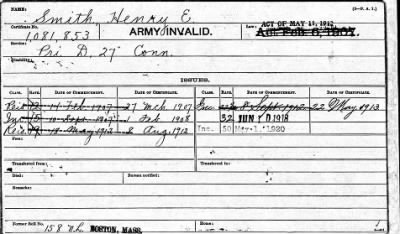 NAME: Smith, Henry E. (3—P. A. I.)
Certificate No. 1,081,853 ARMY INVALID. ACT OF MAY 11, 1912
Act Feb 6, 1907.
Service: Pri D, 27" Conn.
Disability:
ISSUES.
CLASS. RATE. DATE OF COMMENCEMENT. DATE OF CERTIFICATE. CLASS. RATE. DATE OF COMMENCEMENT. DATE OF CERTIFICATE.
12 14 Feb 1907 27 Mch 1907 Inc Sept 1912 22 May 1913
Inc 15 10 Sept 1907 1 Feb 1908 32 JUN 10 1918
18 May 1912 8 Aug 1912 Inc. 50 May 1, 1920
From: From:
Transferred from: Transferred from:
Died: Bureau notified:
Remarks:
Former Roll No. 158 BOSTON, MASS. Home: